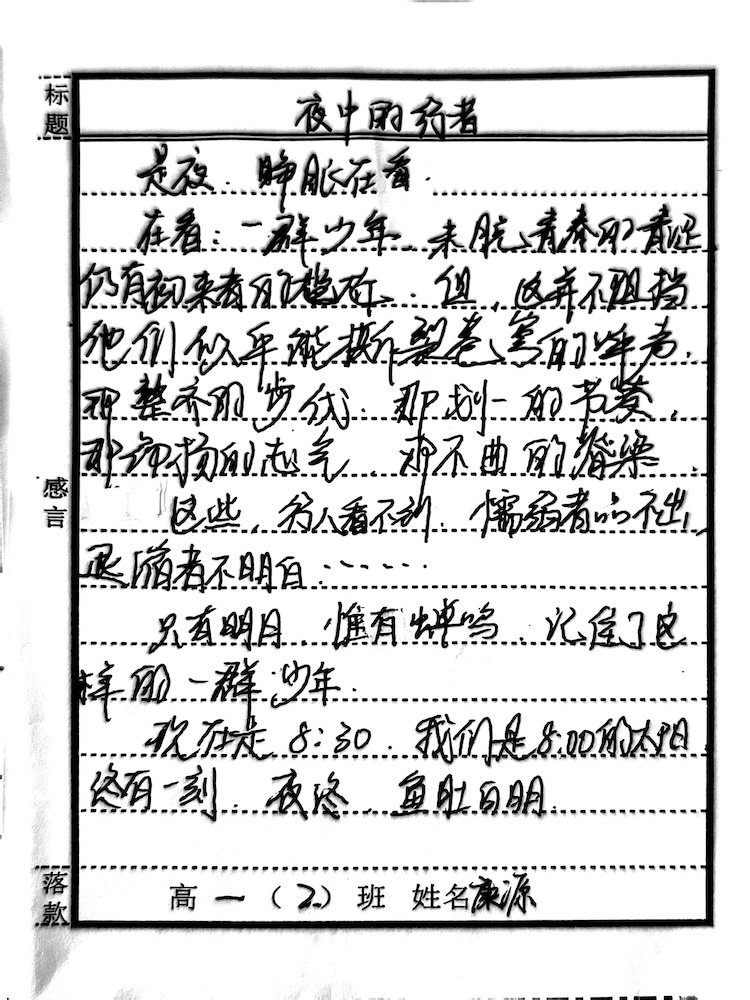 标题
夜中的行者
是夜，睁眼在看。
在看：一群少年，未脱青春的青涩
仍有初来者的 但，这并不阻挡
他们似乎能撕裂苍穹的喊声，
那整齐的步伐，那划一的节奏，
那 扬的志气，那不曲的脊梁。
这些，旁人看不到，懦弱者品不出，
退缩者不明白……
只有明月，惟有蝉鸣，记住了这
样的一群少年。
现在是8:30，我们是8:00的太阳，
终有一刻，夜终，鱼肚白明
感言
落款
高一（2）班 姓名康源